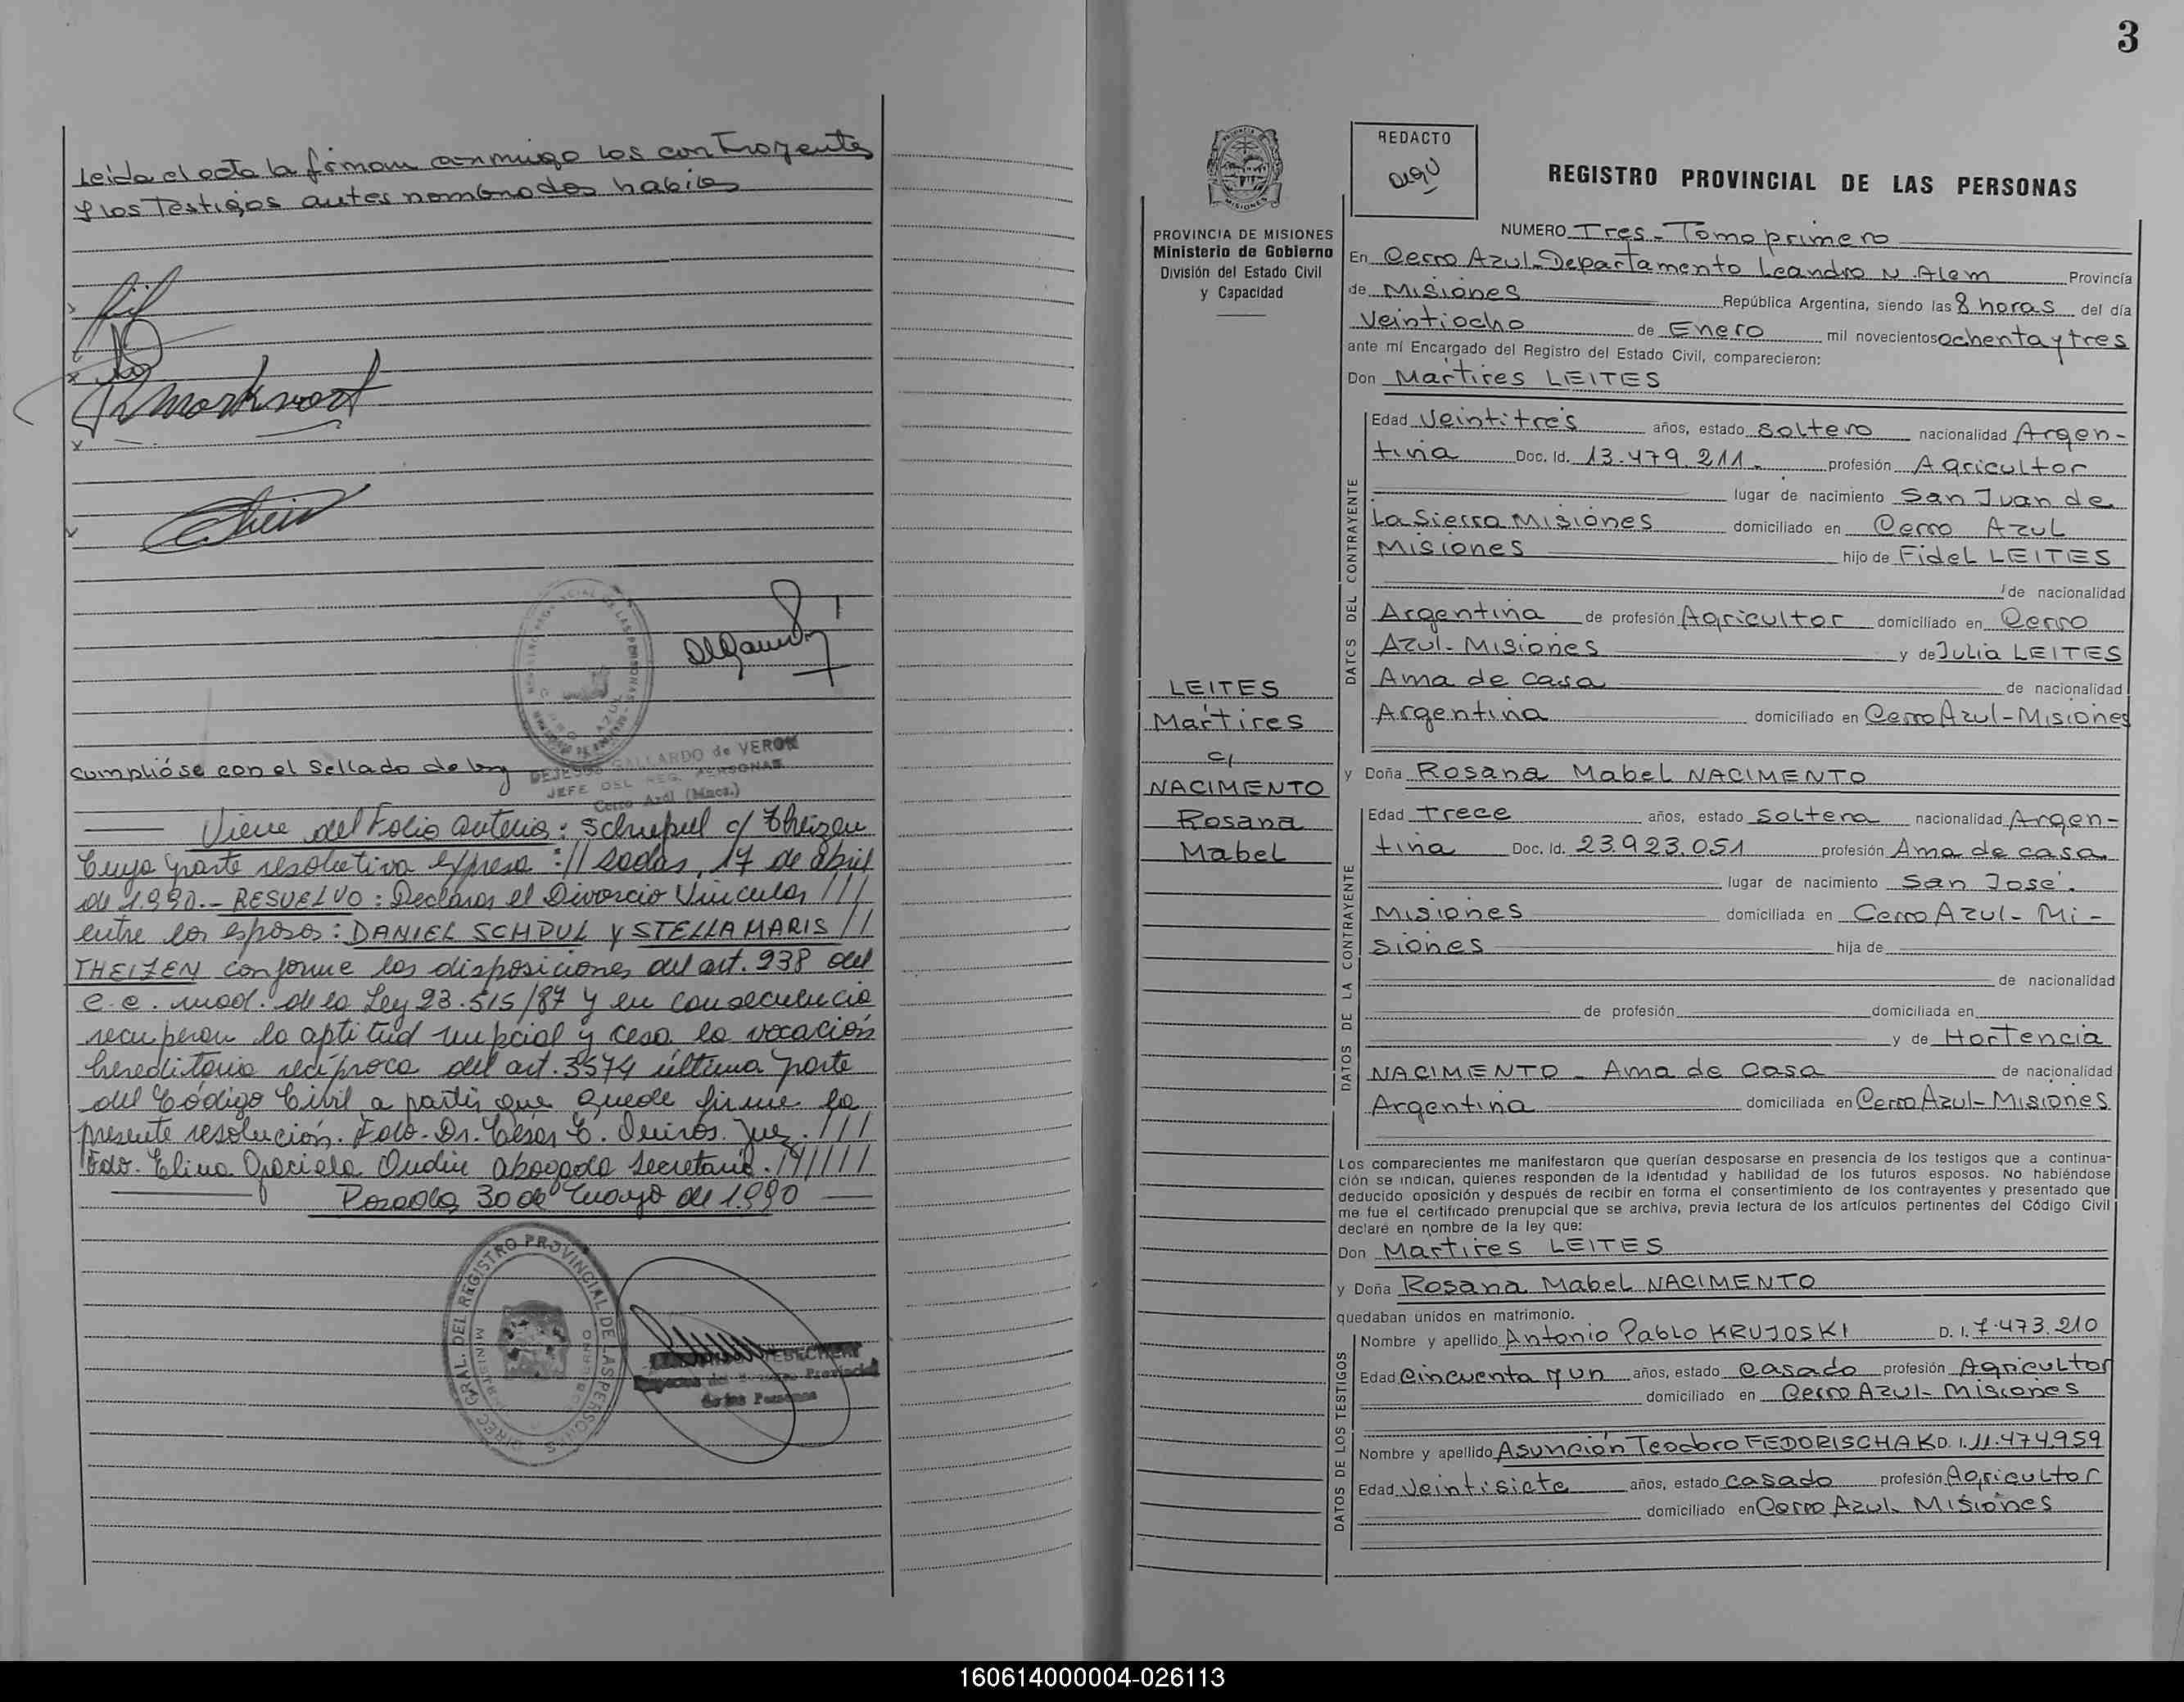 3
Leida el acta la firman conmigo los contrayentes
y los Testigos antes nombrados habiles
Cumplióse con el Sellado de ley
DEJESUS GALLARDO de VERON
JEFE DEL REG. PERSONAS
Cerro Azul (Mnes.)
Viene del Folio anterior: Schupul c/ Theizen
Cuya parte resolutiva expresa :// sadas, 17 de abril
de 1.990.- RESUELVO: Declarar el Divorcio Vincular ///
entre los esposos: DANIEL SCHPUL y STELLA MARIS //
THEIZEN conforme las disposiciones del art. 238 del
C.C. mod. de la Ley 23.515/87 y en consecuencia
recuperan la aptitud nupcial y cesa la vocación
hereditaria recíproca del art. 3574 última parte
del Código Civil a partir que quede firme la
presente resolución. Fdo. Dr. César C. Quirós. Juez. ///
Fdo. Elina Graciela Oudin abogada Secretaria.
Posadas, 30 de mayo de 1.990
DIREC. GRAL. DEL REGISTRO PROVINCIAL DE LAS PERSONAS
PROVINCIA DE MISIONES
Ministerio de Gobierno
División del Estado Civil
y Capacidad
LEITES
Martires
c/
NACIMENTO
Rosana
Mabel
REDACTO
REGISTRO PROVINCIAL DE LAS PERSONAS
NUMERO Tres - Tomo primero
En Cerro Azul - Departamento Leandro N. Alem Provincia
de Misiones República Argentina, siendo las 8 horas del día
Veintiocho de Enero mil novecientos ochenta y tres
ante mí Encargado del Registro del Estado Civil, comparecieron:
Don Martires LEITES
DATOS DEL CONTRAYENTE
Edad Veintitrés años, estado soltero nacionalidad Argen-
tina Doc. Id. 13.479.211.- profesión Agricultor
lugar de nacimiento San Juan de
La Sierra Misiones domiciliado en Cerro Azul
Misiones hijo de Fidel LEITES
de nacionalidad
Argentina de profesión Agricultor domiciliado en Cerro
Azul - Misiones y de Julia LEITES
Ama de casa de nacionalidad
Argentina domiciliado en Cerro Azul - Misiones
y Doña Rosana Mabel NACIMENTO
DATOS DE LA CONTRAYENTE
Edad Trece años, estado soltera nacionalidad Argen-
tina Doc. Id. 23.923.051 profesión Ama de casa.
lugar de nacimiento San José.
Misiones domiciliada en Cerro Azul - Mi-
siones hija de
de nacionalidad
de profesión domiciliada en
y de Hortencia
NACIMENTO - Ama de casa de nacionalidad
Argentina domiciliada en Cerro Azul - Misiones
Los comparecientes me manifestaron que querían desposarse en presencia de los testigos que a continua-
ción se indican, quienes responden de la identidad y habilidad de los futuros esposos. No habiéndose
deducido oposición y después de recibir en forma el consentimiento de los contrayentes y presentado que
me fue el certificado prenupcial que se archiva, previa lectura de los artículos pertinentes del Código Civil
declaré en nombre de la ley que:
Don Martires LEITES
y Doña Rosana Mabel NACIMENTO
quedaban unidos en matrimonio.
DATOS DE LOS TESTIGOS
Nombre y apellido Antonio Pablo KRUJOSKI D. I. 7.473.210
Edad Cincuenta y un años, estado casado profesión Agricultor
domiciliado en Cerro Azul - Misiones
Nombre y apellido Asunción Teodoro FEDORISCHAK D. I. 11.474.959
Edad Veintisiete años, estado casado profesión Agricultor
domiciliado en Cerro Azul - Misiones
160614000004-026113